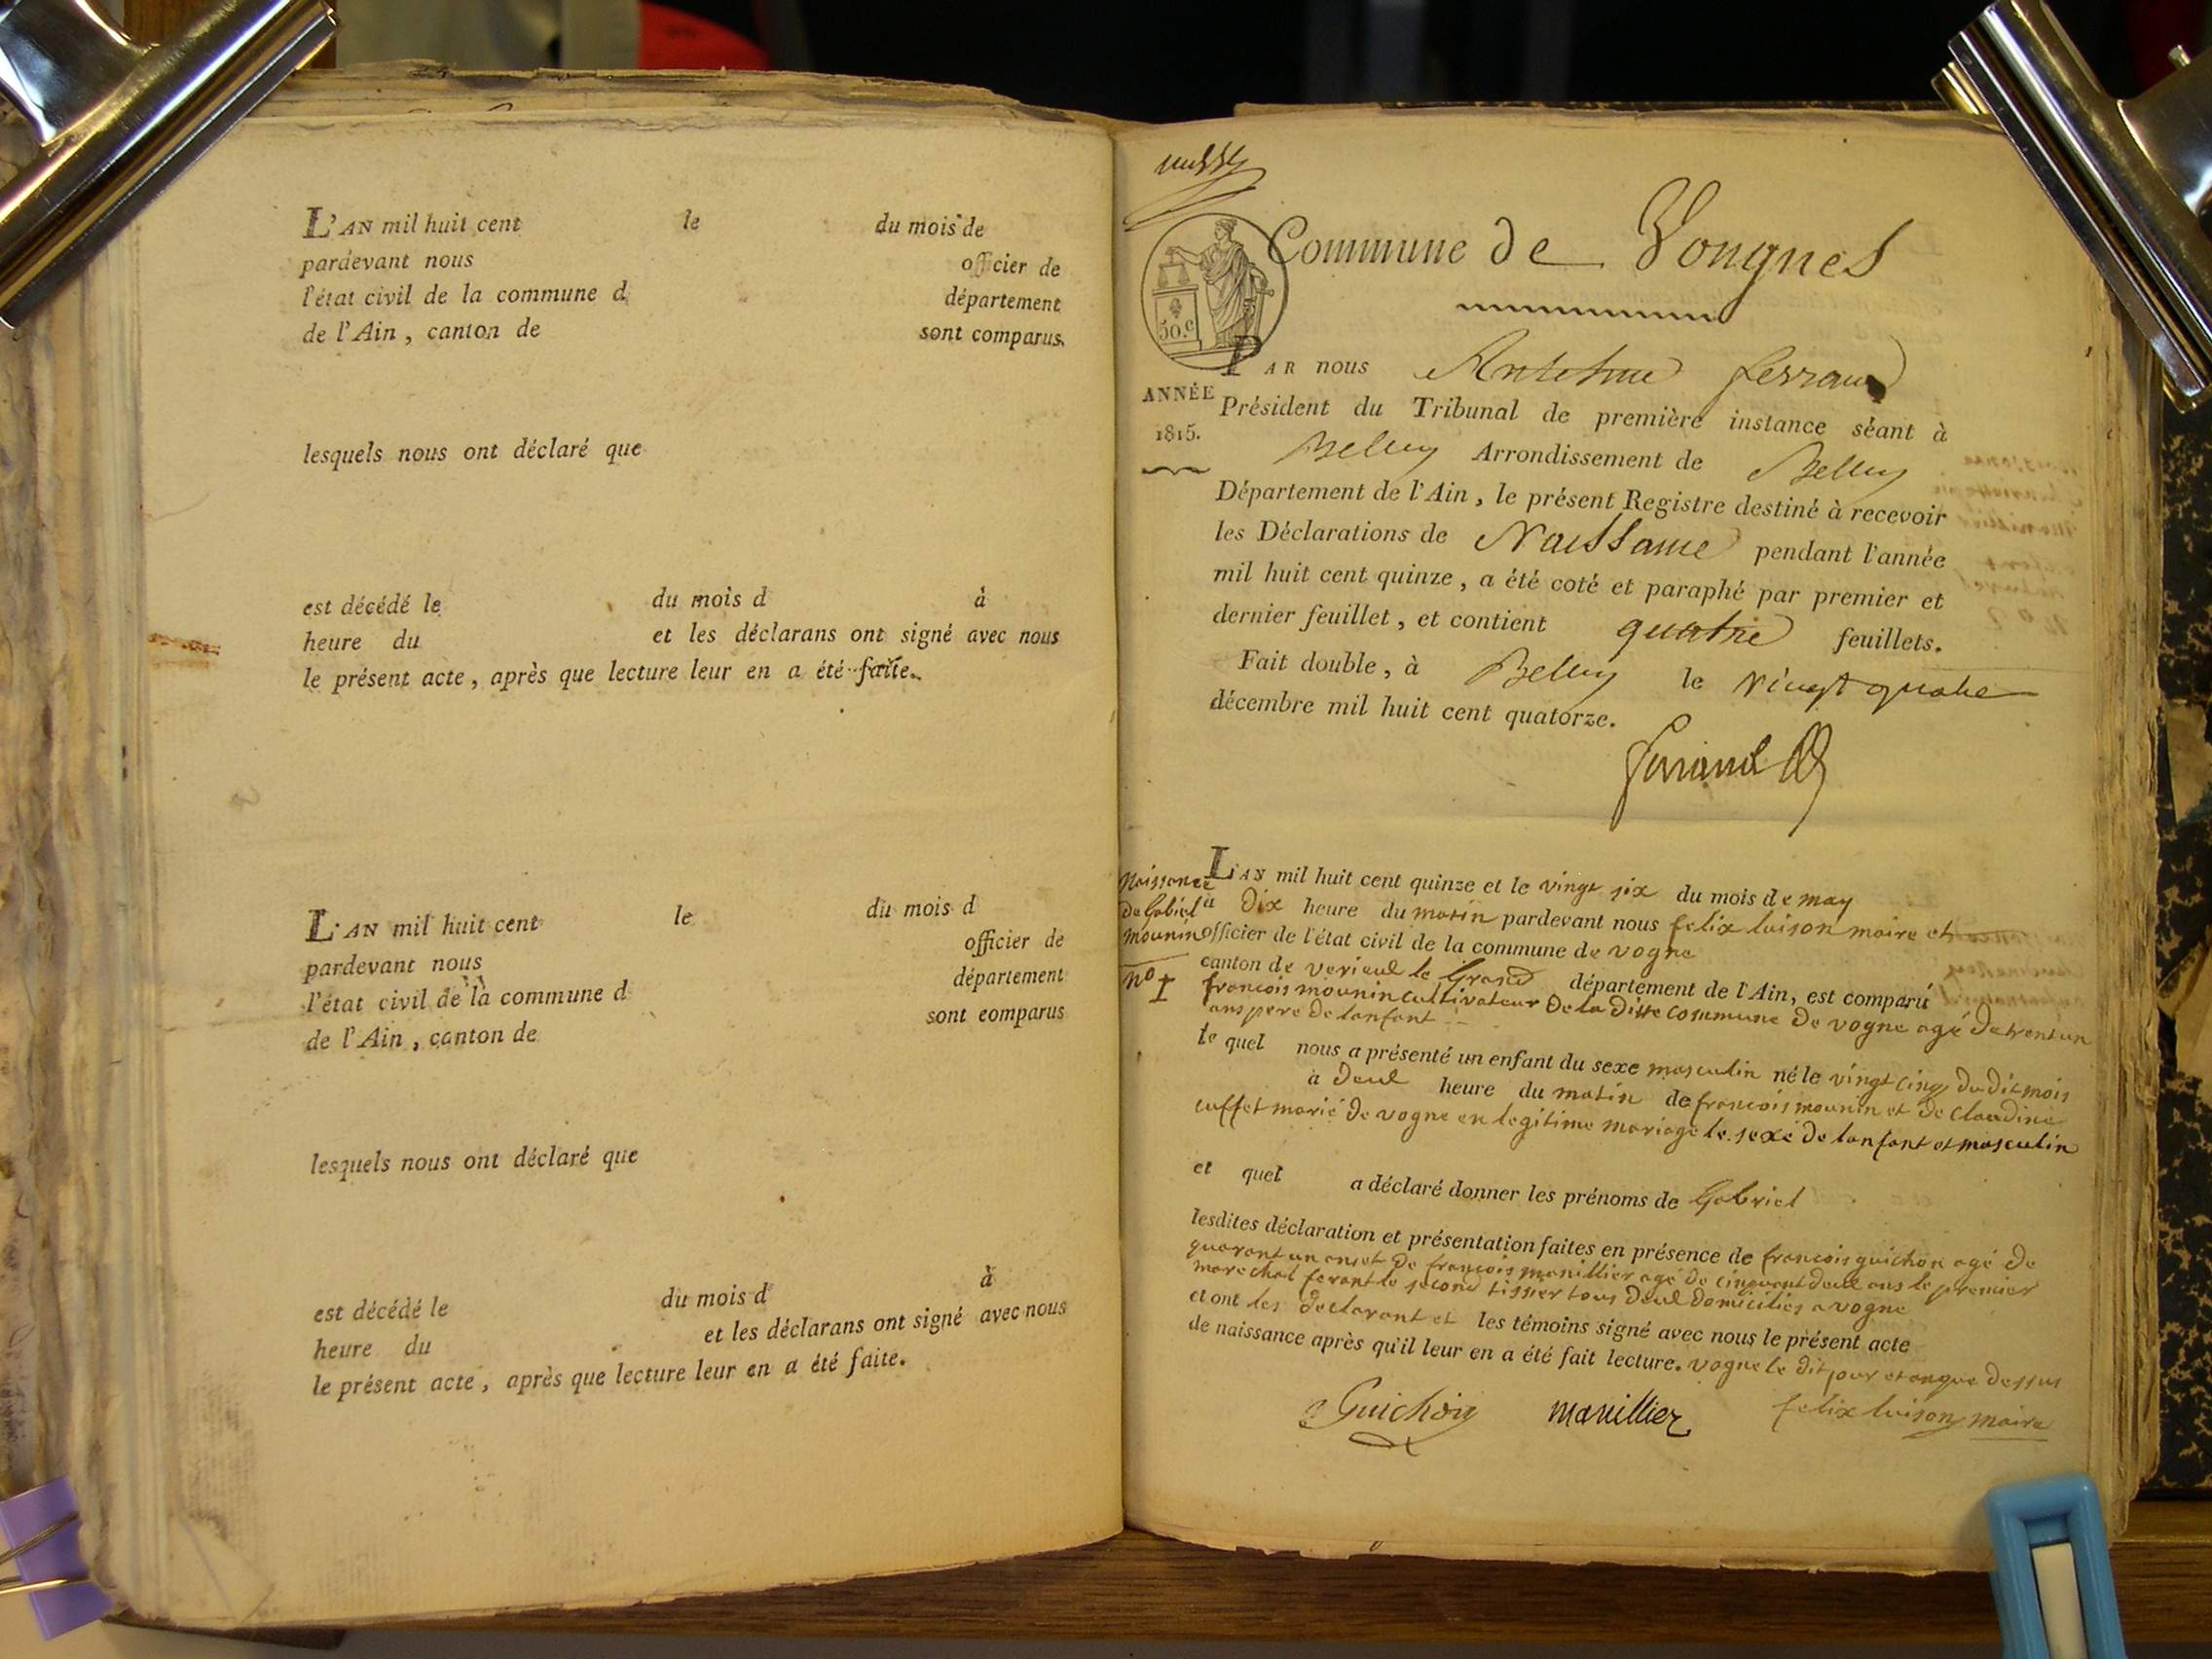 L'AN mil huit cent le du mois de
pardevant nous officier de
l'état civil de la commune d département
de l'Ain, canton de sont comparus.
lesquels nous ont déclaré que
est décédé le du mois d à
heure du et les déclarans ont signé avec nous
le présent acte, après que lecture leur en a été faite.
L'AN mil huit cent le du mois d
pardevant nous officier de
l'état civil de la commune d département
de l'Ain, canton de sont comparus
lesquels nous ont déclaré que
est décédé le du mois d à
heure du et les déclarans ont signé avec nous
le présent acte, après que lecture leur en a été faite.
Commune de Vongnes
50.c
ANNÉE
1815.
PAR nous Anthelme ferrand
Président du Tribunal de première instance séant à
Belley Arrondissement de Belley
Département de l'Ain, le présent Registre destiné à recevoir
les Déclarations de Naissance pendant l'année
mil huit cent quinze, a été coté et paraphé par premier et
dernier feuillet, et contient quatre feuillets.
Fait double, à Belley le vingt quatre
décembre mil huit cent quatorze.
ferrand
Naissance
de Gabiel
mounin
no 1
L'AN mil huit cent quinze et le vingt six du mois de may
à Dix heure du matin pardevant nous felix luison maire et
officier de l'état civil de la commune de vogne
canton de verieul le Grand département de l'Ain, est comparu
francois mounin cultivateur De la Ditte commune De vogne agé De trent un
ans pere De lanfant
le quel nous a présenté un enfant du sexe masculin né le vingt cinq du dit mois
à Deul heure du matin de francois mounin et De Claudine
cuffet marié De vogne en legitime mariage le sexe De lanfant et masculin
et quel a déclaré donner les prénoms de Gabriel
lesdites déclaration et présentation faites en présence de francois guichon agé De
quarant un ans et De francois manillier agé De cinquant deul ans le premier
marechal ferant le second tissier tous Deul Domicilies a vogne
et ont les Declarant et les témoins signé avec nous le présent acte
de naissance après qu'il leur en a été fait lecture. vogne le Dit jour et an que Dessus
Guichon manillier felix luison maire